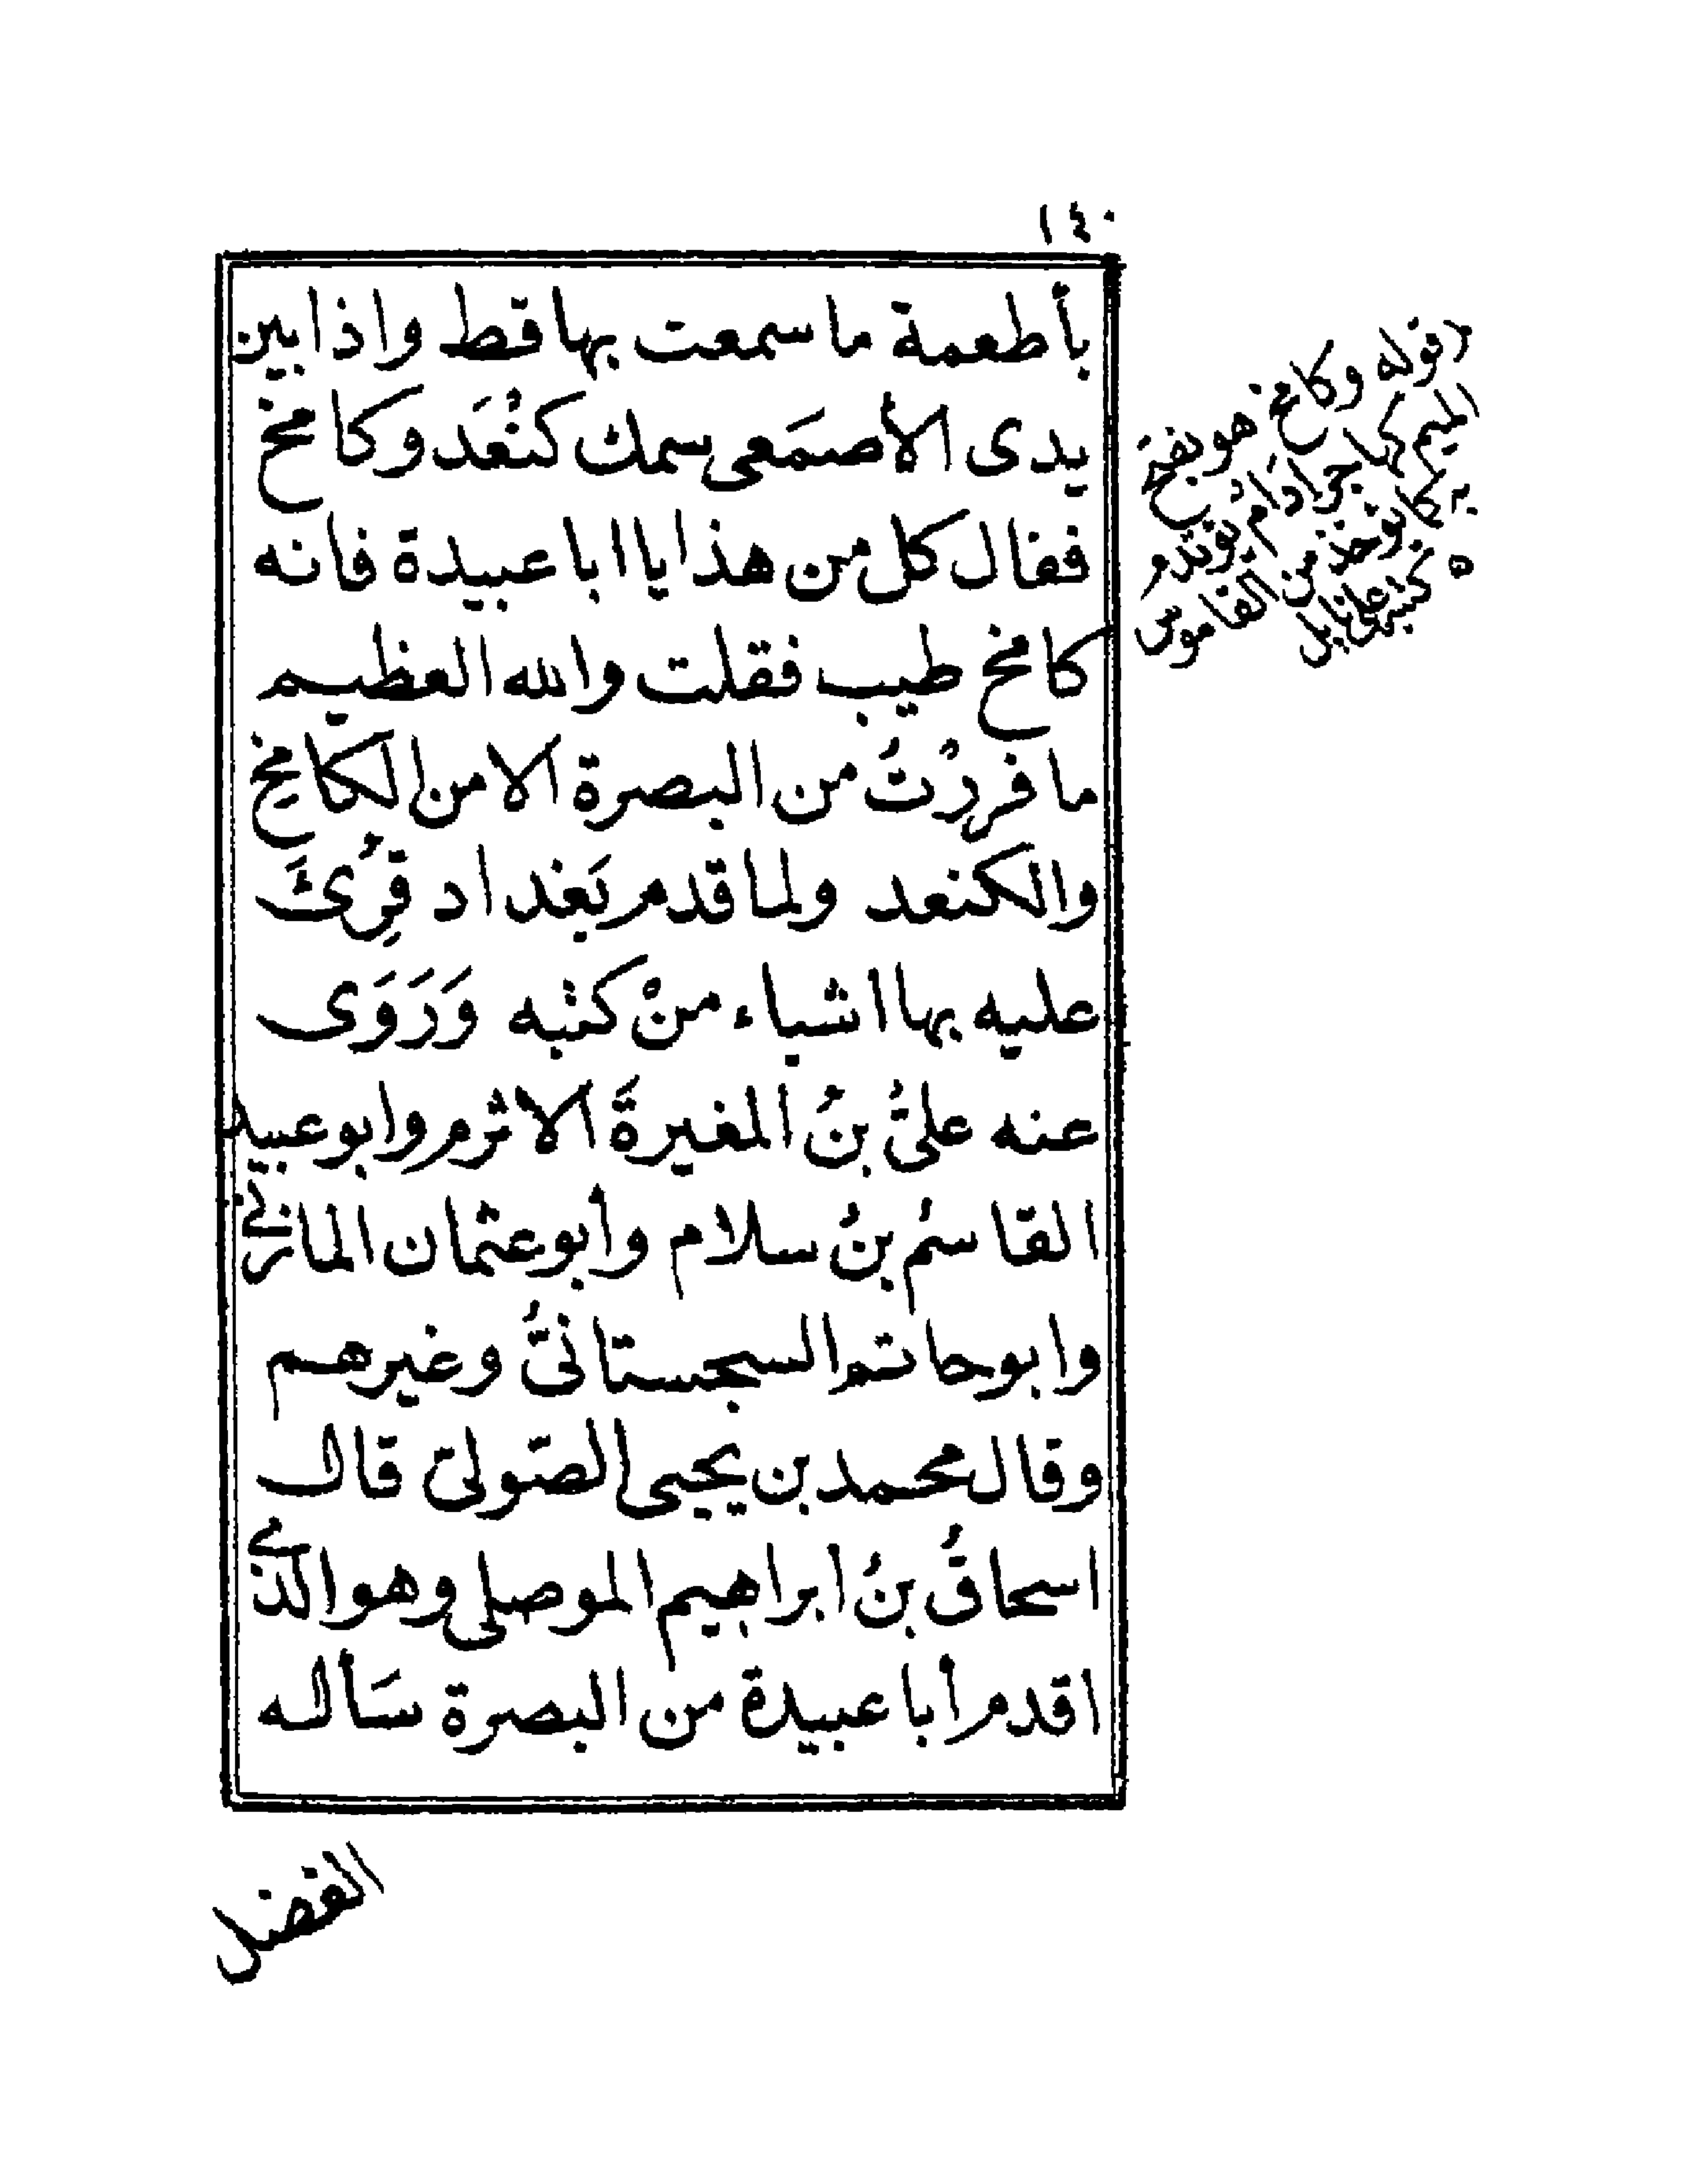 ١٤٠
بأطعمة ما سمعت بها قط واذا بين
يدى الأصمَعى سمك كنْعَد وكامخ
فقال كل من هذا يا ابا عبيدة فانه
كامخ طيب فقلت والله العظيم
ما فررْتُ من البصرة الا من الكامخ
والكنعد ولما قدم بَغداد قرِئَ
عليه بها اشياء منْ كتبه وَرَوَى
عنه علىُّ بنُ المغيرةَ الاثرم وابو عبيد
القاسمُ بنُ سلام وأبو عثمان المازنى
وابو حاتم السجستانىُّ وغيرهم
وقال محمد بن يحيى الصّولىّ قال
اسحاقُ بنُ ابراهيم الموصلى وهو الذى
اقدم أبا عبيدة من البصرة سَأل الـه
الفضل
قوله وكامخ هو بفتح
الميم كما جر ادام يؤتدم
به كما يؤخذ من القاموس